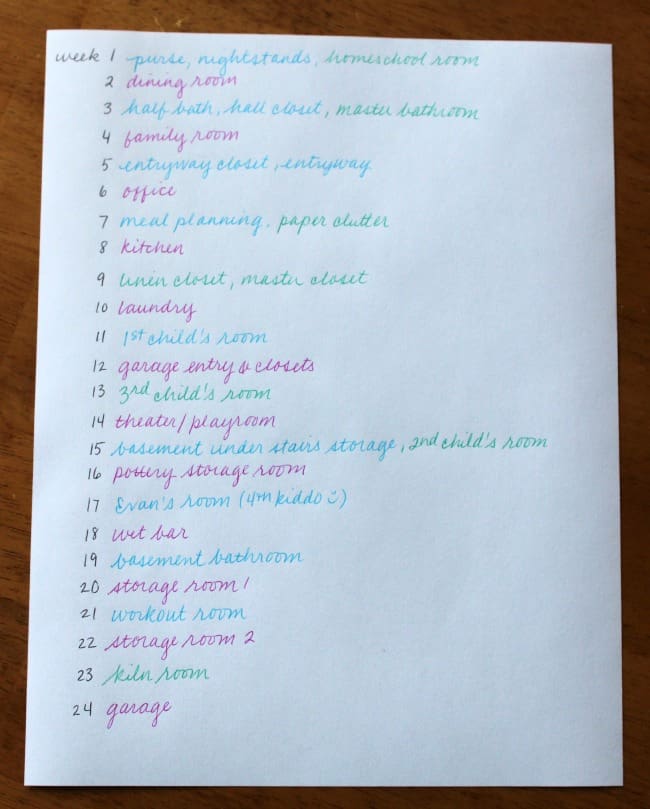 week 1 purse, nightstands, homeschool room
2 dining room
3 half bath, hall closet, master bathroom
4 family room
5 entryway closet, entryway
6 office
7 meal planning, paper clutter
8 kitchen
9 linen closet, master closet
10 laundry
11 1st child's room
12 garage entry & closets
13 3rd child's room
14 theater/playroom
15 basement under stairs storage, 2nd child's room
16 pottery storage room
17 Evan's room (4th kiddo ☺)
18 wet bar
19 basement bathroom
20 storage room 1
21 workout room
22 storage room 2
23 kiln room
24 garage